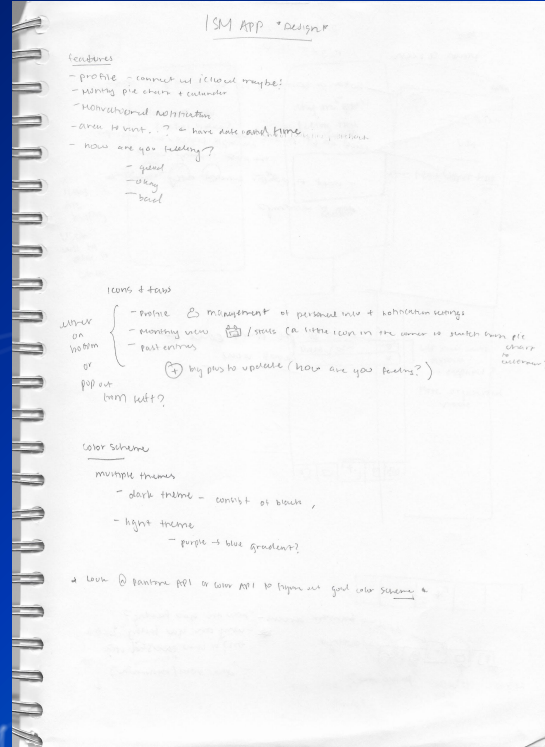 ISM APP *Design*
features
- profile - connect w/ icloud maybe?
- Monthly pie charts + calander
- Motivational notification
- area to vent..? & have date and time
- how are you feeling?
- good
- okay
- bad
icons & tabs
- Profile & management of personal info + notification settings
- Monthly view / stats (a little icon in the corner to switch from pie chart to calendar)
- Past entries
either on bottom or pop out from left?
+ big plus to update (how are you feeling?)
color scheme
multiple themes
- dark theme - consist of blacks,
- light theme
- purple → blue gradent?
* Look @ pantone API or color API to figure out good color scheme *